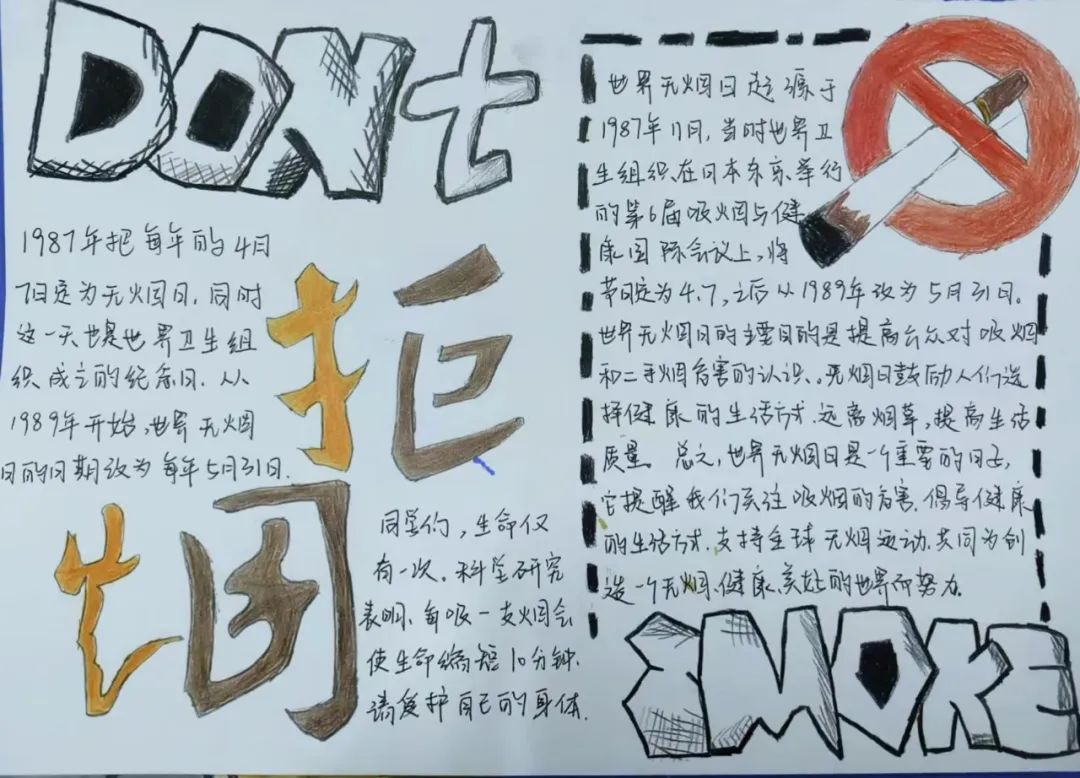 DON't
1987年把每年的4月
7日定为无烟日,同时
这一天也是世界卫生组
织成立的纪念日.从
1989年开始,世界无烟
日的日期改为每年5月31日.
拒
烟
同学们,生命仅
有一次。科学研究
表明,每吸一支烟会
使生命缩短10分钟.
请爱护自己的身体.
世界无烟日起源于
1987年11月,当时世界卫
生组织在日本东京举行
的第6届吸烟与健
康国际会议上,将
节日定为4.7,之后从1989年改为5月31日。
世界无烟日的主要目的是提高公众对吸烟
和二手烟危害的认识。。无烟日鼓励人们选
择健康的生活方式.远离烟草,提高生活
质量。总之,世界无烟日是一个重要的日子,
它提醒我们关注吸烟的危害.倡导健康
的生活方式.支持全球无烟运动.共同为创
造一个无烟、健康、美好的世界而努力.
SMOKE